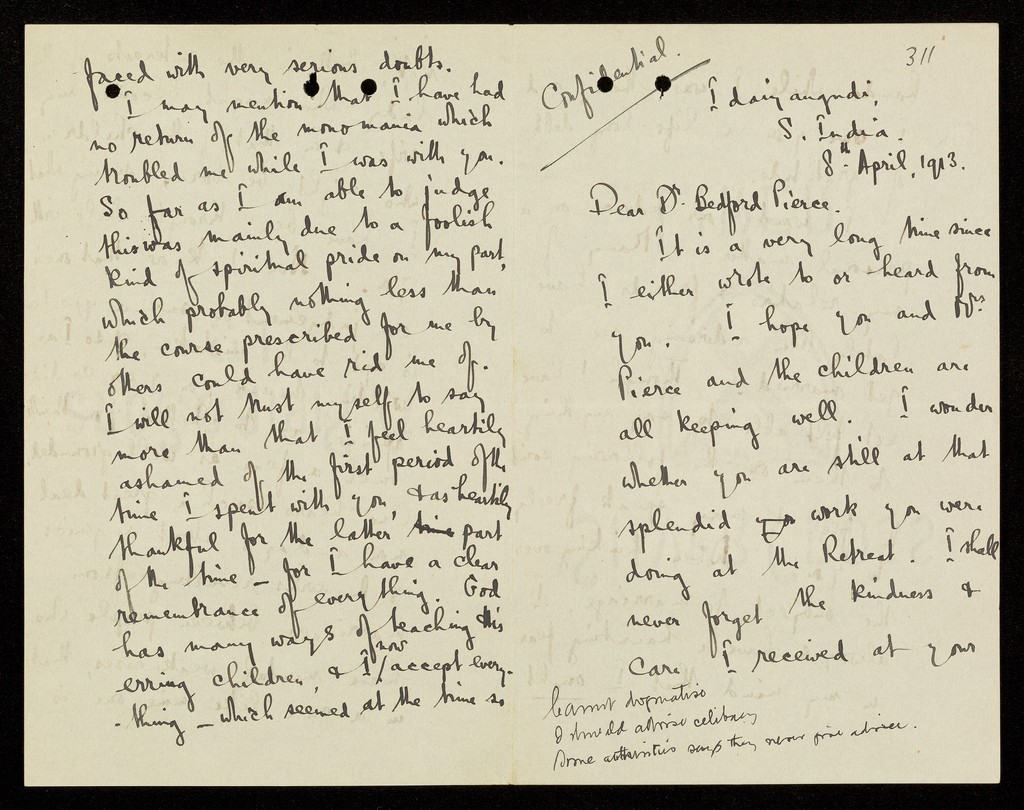 faced with very serious doubts.
I may mention that I have had
no return of the monomania which
troubled me while I was with you.
So far as I am able to judge
this was mainly due to a foolish
kind of spiritual pride on my part,
which probably nothing less than
the course prescribed for me by
others could have rid me of.
I will not trust myself to say
more than that I feel heartily
ashamed of the first period of the
time I spent with you, & as heartily
thankful for the latter time part
of the time – for I have a clear
remembrance of everything. God
has many ways of teaching His
erring children, & I now accept every-
-thing – which seemed at the time so
311
Confidential.
Idaiyangudi,
S. India.
8th April, 1913.
Dear Dr Bedford Pierce.
It is a very long time since
I either wrote to or heard from
you. I hope you and Mrs
Pierce and the children are
all keeping well. I wonder
whether you are still at that
splendid work you were
doing at the Retreat. I shall
never forget the kindness &
care I received at your
Cannot dogmatise
I should advise celibacy
Some authorities say they never give advice.